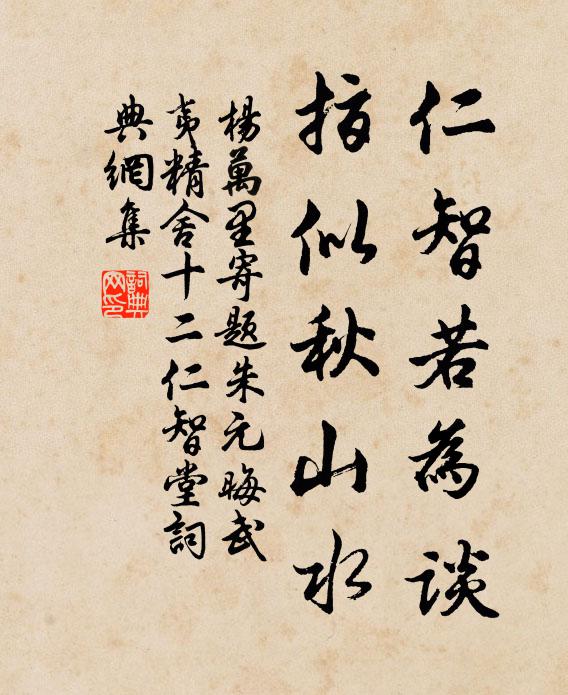 仁智若為談
指似秋山水
楊萬里寄題朱元晦武
夷精舍十二仁智堂詞
典網集
詞典
网印